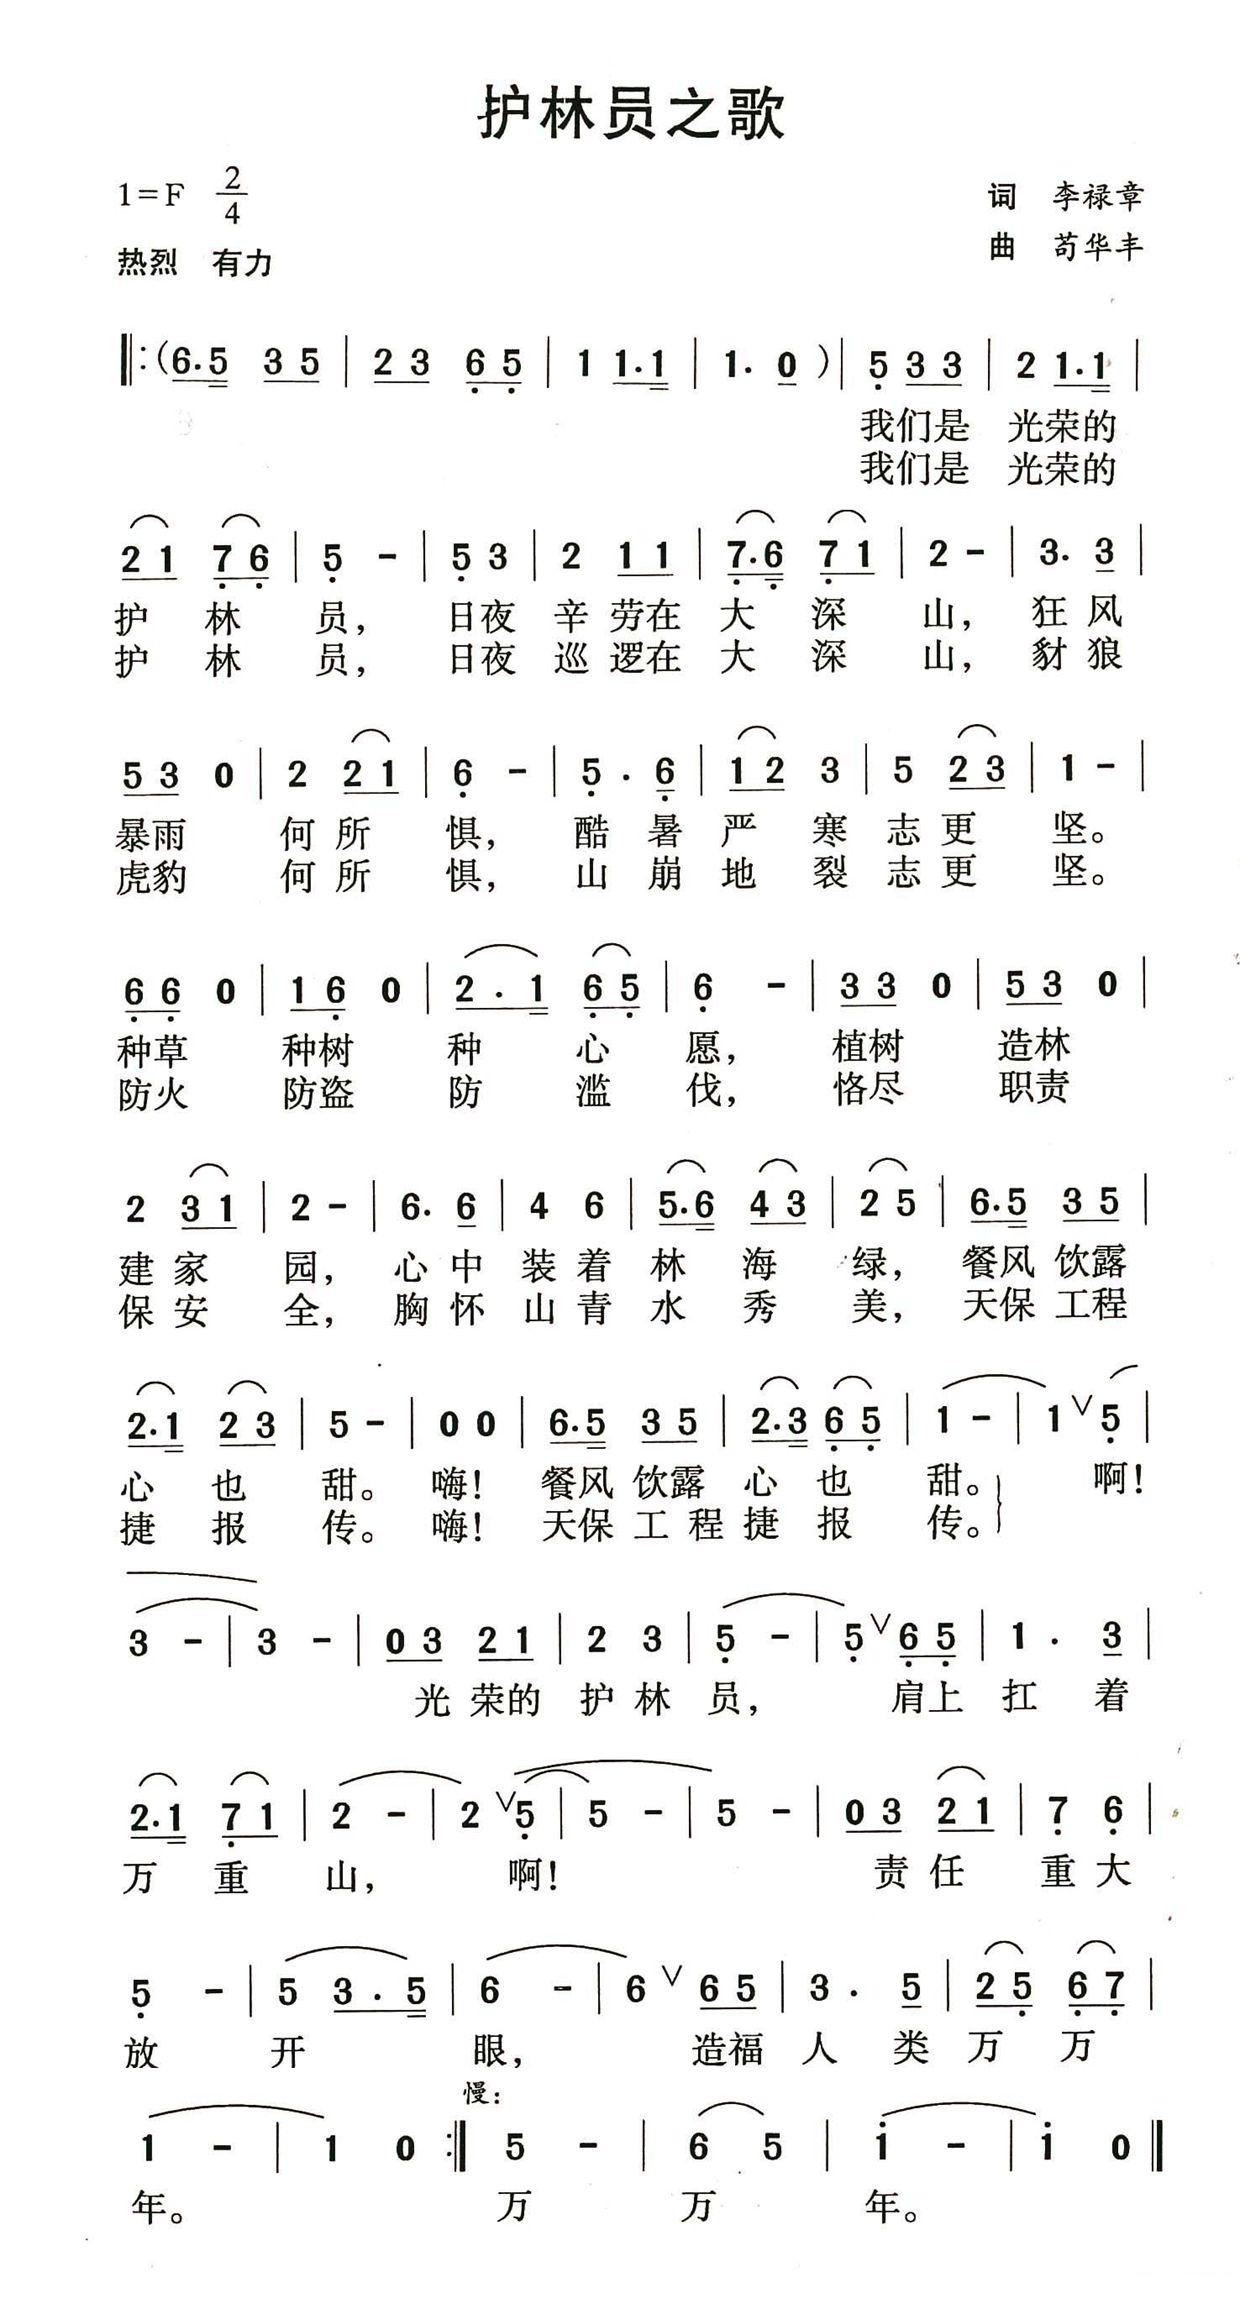 护林员之歌
1=F 2/4
词 李禄章
热烈 有力
曲 苟华丰
‖:(6.5 3 5 | 2 3 6 5 | 1 1.1 | 1. 0 )| 5 3 3 | 2 1.1 |
我们是 光荣的
我们是 光荣的
2 1 7 6 | 5 - | 5 3 | 2 1 1 | 7.6 7 1 | 2 - | 3. 3 |
护 林 员， 日夜 辛 劳在 大 深 山， 狂 风
护 林 员， 日夜 巡 逻在 大 深 山， 豺 狼
5 3 0 | 2 2 1 | 6 - | 5 . 6 | 1 2 3 | 5 2 3 | 1 - |
暴雨 何 所 惧， 酷 暑 严 寒 志 更 坚。
虎豹 何 所 惧， 山 崩 地 裂 志 更 坚。
6 6 0 | 1 6 0 | 2 . 1 6 5 | 6 - | 3 3 0 | 5 3 0 |
种草 种树 种 心 愿， 植树 造林
防火 防盗 防 滥 伐， 恪尽 职责
2 3 1 | 2 - | 6. 6 | 4 6 | 5.6 4 3 | 2 5 | 6.5 3 5 |
建 家 园， 心 中 装 着 林 海 绿， 餐风 饮露
保 安 全， 胸 怀 山 青 水 秀 美， 天保 工程
2.1 2 3 | 5 - | 0 0 | 6.5 3 5 | 2.3 6 5 | 1 - | 1 ∨ 5 |
心 也 甜。 嗨！ 餐风 饮露 心 也 甜。 啊！
捷 报 传。 嗨！ 天保 工 程 捷 报 传。
3 - | 3 - | 0 3 2 1 | 2 3 | 5 - | 5 ∨ 6 5 | 1 . 3 |
光 荣的 护 林 员， 肩上 扛 着
2.1 7 1 | 2 - | 2 ∨ 5 | 5 - | 5 - | 0 3 2 1 | 7 6 |
万 重 山， 啊！ 责 任 重 大
5 - | 5 3 . 5 | 6 - | 6 ∨ 6 5 | 3 . 5 | 2 5 6 7 |
放 开 眼， 造福 人 类 万 万
慢：
1 - | 1 0 :‖ 5 - | 6 5 | i - | i 0 ‖
年。 万 万 年。